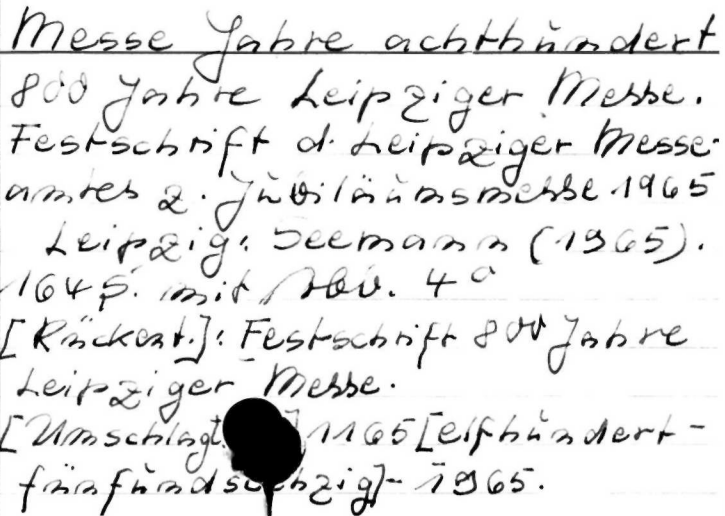 Messe Jahre achthundert
800 Jahre Leipziger Messe.
Festschrift d. Leipziger Messe-
amtes z. Jubiläumsmesse 1965
Leipzig: Seemann (1965).
164 S. mit Abb. 4°
[Rückent.]: Festschrift 800 Jahre
Leipziger Messe.
[Umschlagt ] 1165 [elfhundert-
fünfundsechzig] - 1965.